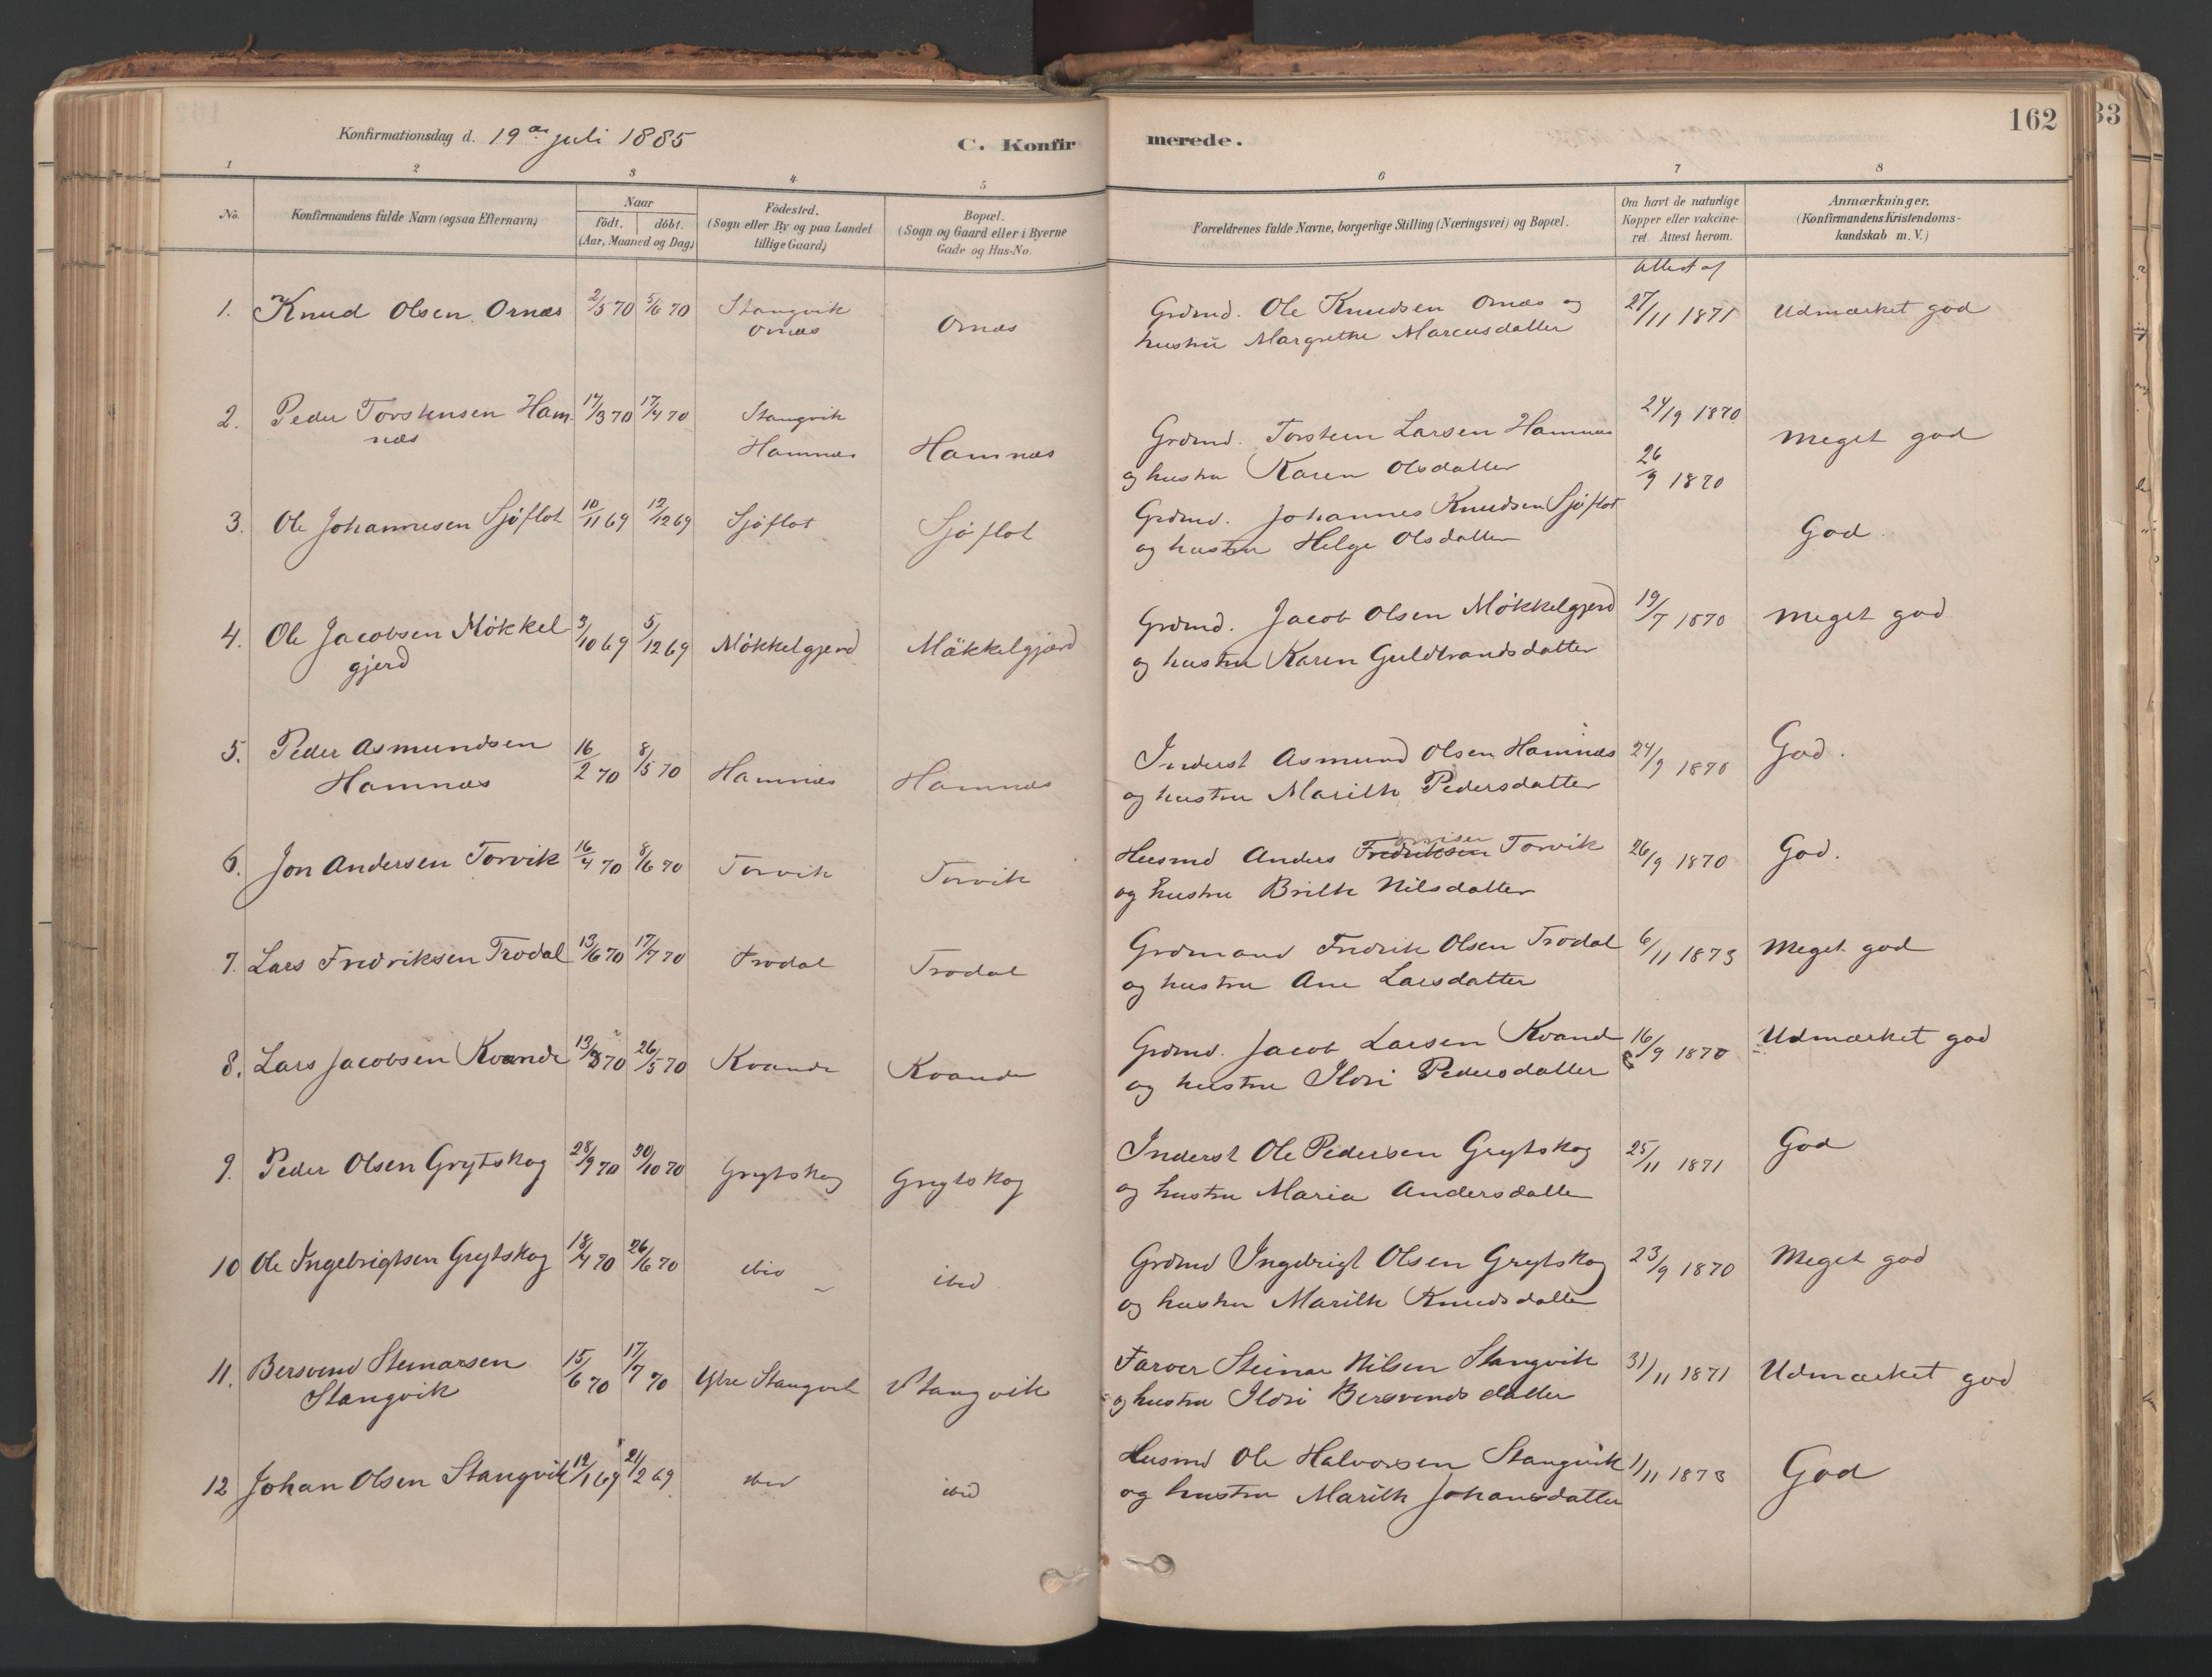 162
33
Konfirmationsdag d. 19de juli 1885
C. Konfirmerede.
1 2 3 4 5 6 7 8
No.
Konfirmandens fulde Navn (ogsaa Efternavn)
Naar
født. døbt.
(Aar, Maaned og Dag)
Fødested.
(Sogn eller By og paa Landet
tillige Gaard)
Bopæl.
(Sogn og Gaard eller i Byerne
Gade og Hus-No.
Forældrenes fulde Navne, borgerlige Stilling (Næringsvei) og Bopæl.
Om havt de naturlige
Kopper eller vakcine-
ret. Attest herom.
Anmærkninger.
(Konfirmandens Kristendoms-
kundskab m. V.)
Attest af
1. Knud Olsen Ornæs 2/5 70 5/6 70 Stangvik Ornæs Grdmd. Ole Knudsen Ornæs og 27/11 1871 Udmærket god
Ornæs
hustru Margrethe Marcusdatter
2. Peder Torstensen Ham 14/3 70 17/4 70 Stangvik Hamnæs Grdmd. Torstein Larsen Hamnæs 24/9 1870 Meget god
næs Hamnæs
og hustru Karen Olsdatter 26/9 1870
3. Ole Johannesen Sjøflot 10/11 69 12/12 69 Sjøflot Sjøflot Grdmd. Johannes Knudsen Sjøflot God.
og hustru Helge Olsdatter
4. Ole Jacobsen Møkkel 3/10 69 5/12 69 Møkkelgjerd Møkkelgjærd Grdmd. Jacob Olsen Møkkelgjerd 19/7 1870 Meget god
gjerd
og hustru Karen Guldbrandsdatter
5. Peder Asmundsen 16/2 70 8/5 70 Hamnæs Hamnæs Inderst Asmund Olsen Hamnæs 24/9 1870 God.
Hamnæs
og hustru Marith Pedersdatter
6. Jon Andersen Torvik 16/4 70 8/6 70 Torvik Torvik Husmd Anders Fredriksen Torvik 26/9 1870 God.
og hustru Brith Nilsdatter
7. Lars Fredriksen Trodal 13/6 70 17/7 70 Trodal Trodal Grdmand Fredrik Olsen Trodal 6/11 1873 Meget god
og hustru Ane Larsdatter
8. Lars Jacobsen Kvande 70 26/5 70 Kvande Kvande Grdmd. Jacob Larsen Kvande 16/9 1870 Udmærket god
og hustru Ildri Pedersdatter
9. Peder Olsen Grytskog 28/9 70 30/10 70 Grytskog Grytskog Inderst Ole Pedersen Grytskog 25/11 1871 God
og hustru Maria Andersdatter
10 Ole Ingebrigtsen Grytskog 18/4 70 26/6 70 ibid ibid Grdmd Ingebrigt Olsen Grytskog 23/9 1870 Meget god
og hustru Marith Knudsdatter
11. Bersvend Steinarsen 15/6 70 17/7 70 Ytre Stangvik Stangvik Farver Steinar Nilsen Stangvik 31/11 1871 Udmærket god
Stangvik
og hustru Ildri Bersvendsdatter
12 Johan Olsen Stangvik 12/1 69 21/2 69 ibid ibid Husmd Ole Halvorsen Stangvik 1/11 1873 God
og hustru Marith Johansdatter